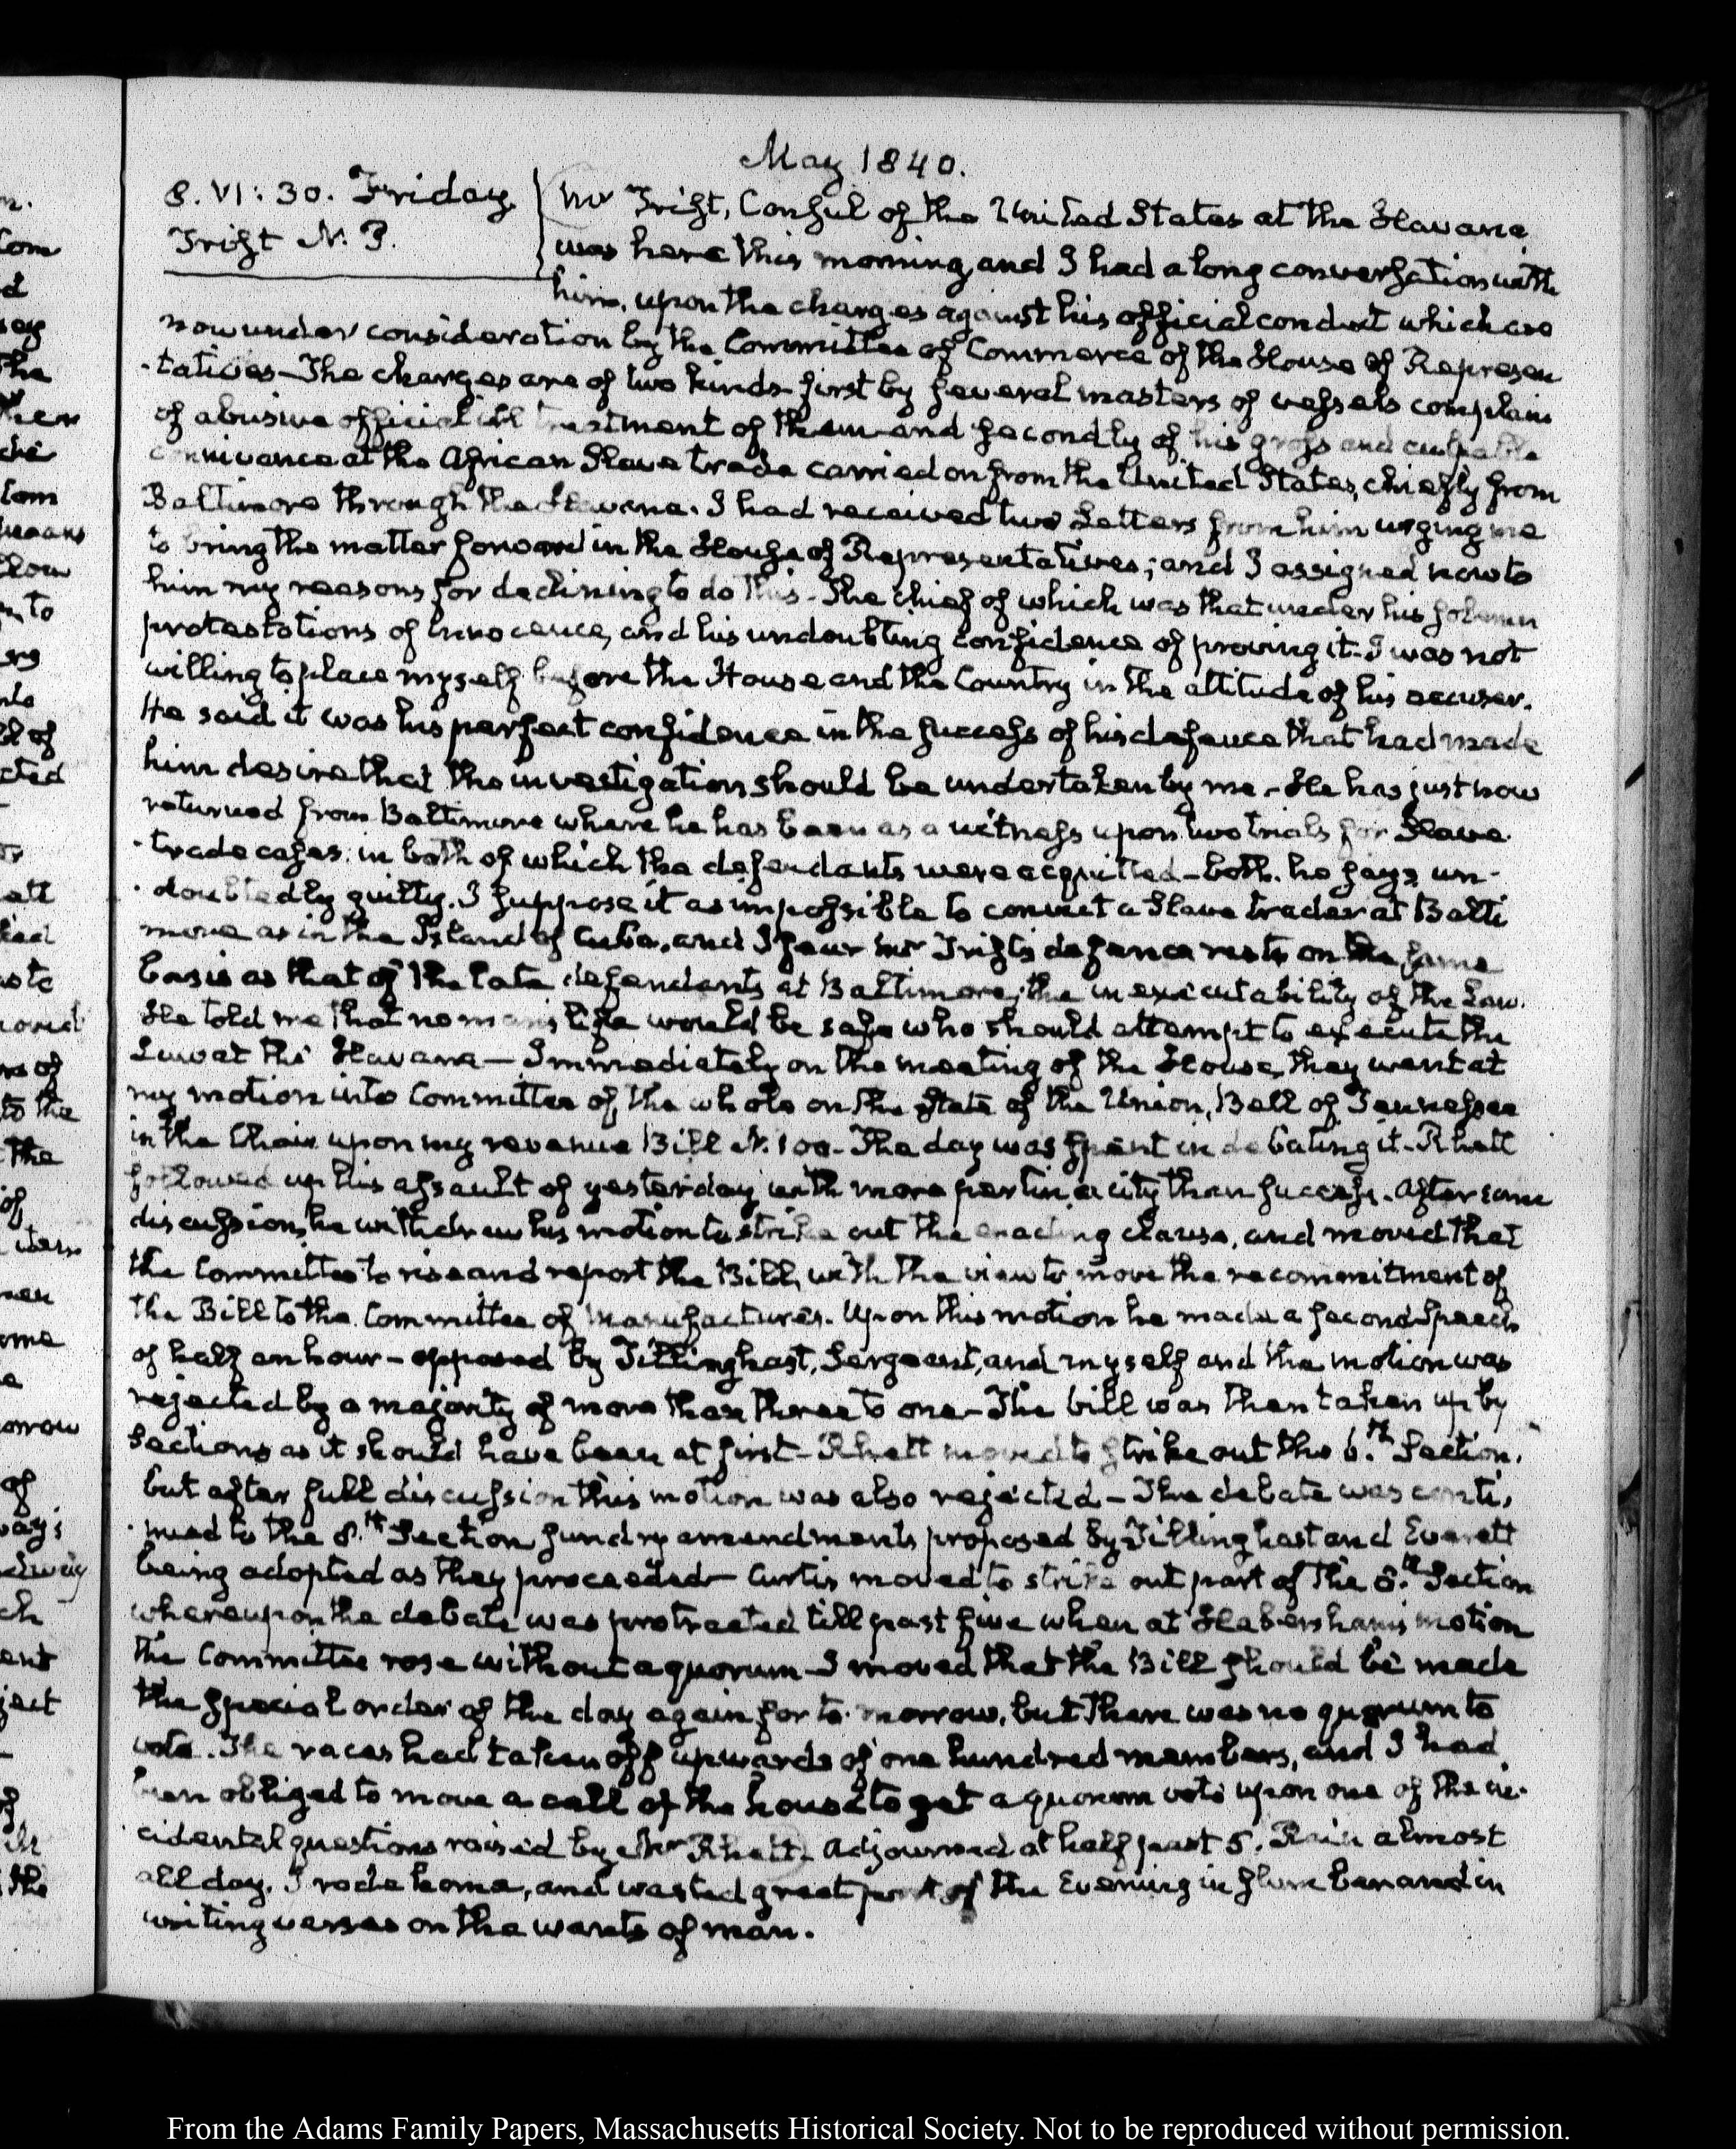 May 1840.
8. VI: 30. Friday.
Trist N. P.
Mr Trist, Consul of the United States at the Havana,
was here this morning, and I had a long conversation with
him, upon the charges against his official conduct which are
now under consideration by the Committee of Commerce of the House of Represen
-tatives—The charges are of two kinds first by several masters of vessels complain
of abusive official ill treatment of them and secondly of his gross and culpable
connivance at the African Slave trade carried on from the United States, chiefly from
Baltimore through the Havana. I had received two Letters from him urging me
to bring the matter forward in the House of Representatives; and I assigned now to
him my reasons for declining to do this. The chief of which was that under his solemn
protestations of innocence, and his undoubting confidence of proving it. I was not
willing to place myself before the House and the Country in the attitude of his accuser.
He said it was his perfect confidence in the success of his defence that had made
him desire that the investigation should be undertaken by me. He has just now
returned from Baltimore where he has been as a witness upon two trials for Slave
-trade cases: in both of which the defendants were acquitted—both, he says, un-
-doubtedly guilty. I suppose it as impossible to convict a Slave trader at Balti
more as in the Island of Cuba, and I fear Mr Trist's defence rests on the same
basis as that of the late defendants at Baltimore; the inexecutability of the Law.
He told me that no man's life would be safe who should attempt to execute the
Law at the Havana—Immediately on the meeting of the House, they went at
my motion into Committee of the whole on the State of the Union, Bell of Tennessee
in the Chair upon my revenue Bill N. 100. The day was spent in debating it. Rhett
followed up his assault of yesterday with more pertinacity than success. After some
discussion, he withdrew his motion to strike out the enacting clause, and moved that
the Committee to rise and report the Bill, with the view to move the recommitment of
the Bill to the Committee of Manufactures. Upon this motion he made a second Speech
of half an hour—opposed by Tillinghast, Sergeant, and myself and the motion was
rejected by a majority of more than three to one—The bill was then taken up by
Sections as it should have been at first—Rhett moved to strike out the 6.th Section,
but after full discussion this motion was also rejected—The debate was conti,
-nued to the 8.th Section sundry amendments proposed by Tillinghast and Everett
being adopted as they proceeded—Curtis moved to strike out part of the 8.th Section
whereupon the debate was protracted till past five when at Habersham's motion
the Committee rose without a quorum—I moved that the Bill should be made
the special order of the day again for to-morrow, but there was no quorum to
vote. The races had taken off upwards of one hundred members, and I had
been obliged to move a call of the house to get a quorum vote upon one of the in-
cidental questions raised by Mr Rhett. Adjourned at half past 5. Rain almost
all day. I rode home, and wasted great part of the Evening in slumber and in
writing verses on the wants of man.
From the Adams Family Papers, Massachusetts Historical Society. Not to be reproduced without permission.